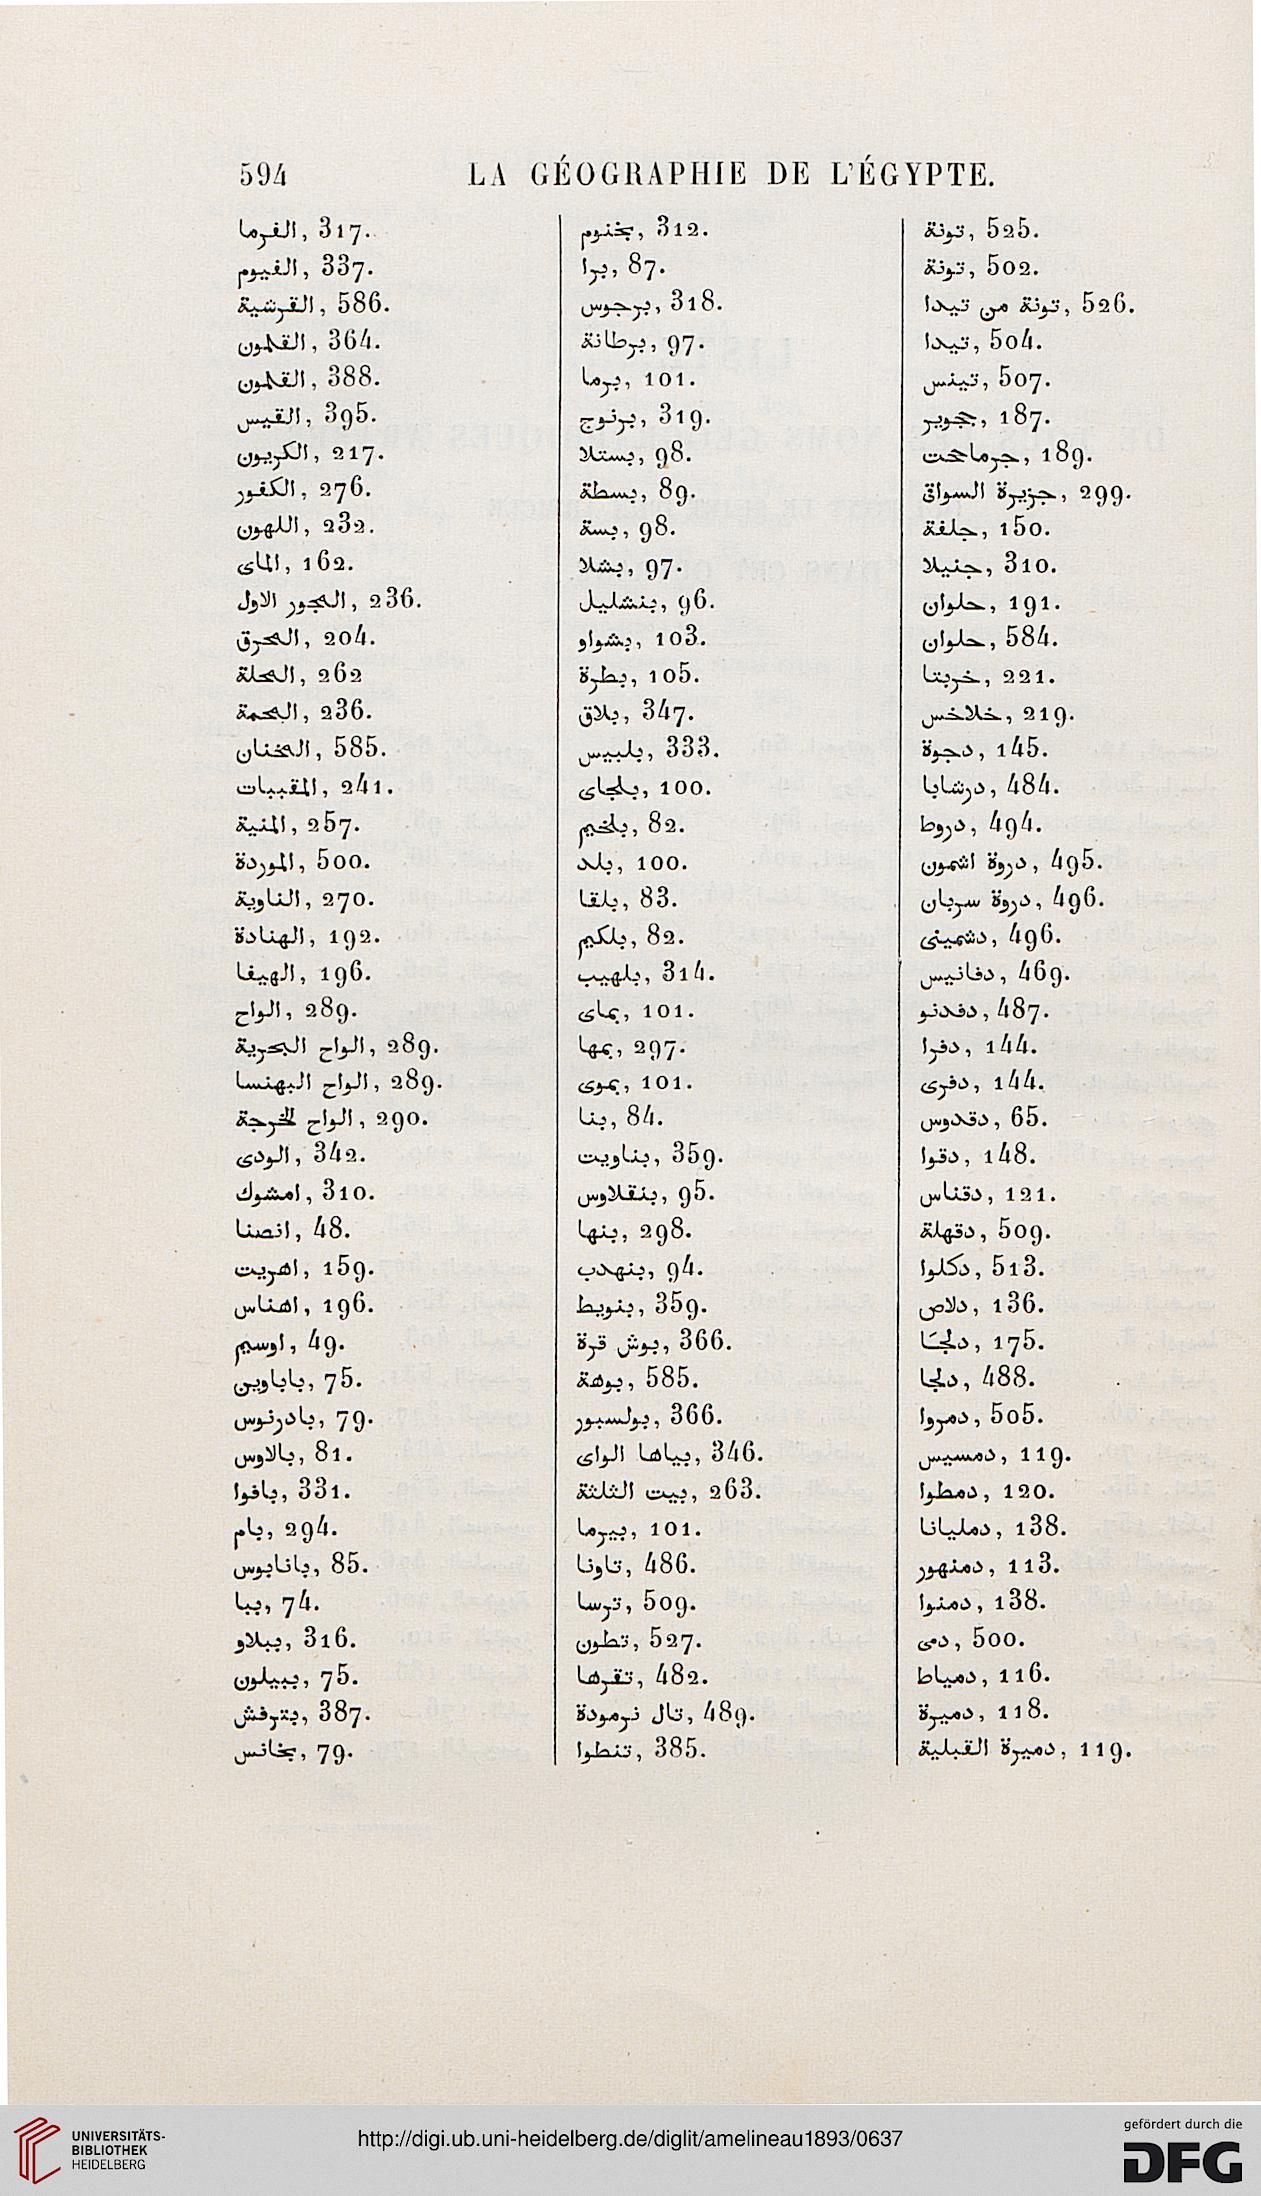 594 LA GÉOGRAPHIE DE L'ÉGYPTE.
الفرما, 317.
الفيوم, 337.
القرشية, 586.
القلمون, 364.
القلمون, 388.
القيس, 395.
الكريون, 217.
الكفور, 276.
اللهون, 232.
الماى, 162.
المجور الاول, 236.
المحرق, 204.
المحلة, 262
المحمة, 236.
المخنان, 585.
المقيبات, 241.
المنية, 257.
الموردة, 500.
الناوية, 270.
الهنادة, 192.
الهيفا, 196.
الواح, 289.
الواح البحرية, 289.
الواح البهنسا, 289.
الواح الخرجة, 290.
الودى, 342.
امشوك, 310.
انصنا, 48.
اهريت, 159.
اهناس, 196.
اوسيم, 49.
باباوين, 75.
بادرنوس, 79.
بالاوس, 81.
بافوا, 331.
بام, 294.
بانابوس, 85.
ببا, 74.
ببلاو, 316.
ببيلون, 75.
بترفش, 387.
بخانس, 79.
بخنوم, 312.
برا, 87.
برجوس, 318.
برطانة, 97.
برما, 101.
برنوج, 319.
بستلا, 98.
بسطة, 89.
بسة, 98.
بشلا, 97.
بنشليل, 96.
بشواو, 103.
بطرة, 105.
بلاق, 347.
بلبيس, 333.
بلجاى, 100.
بلخيم, 82.
بلد, 100.
بلقا, 83.
بلكيم, 82.
بلهيب, 314.
بماى, 101.
بمها, 297.
بموى, 101.
بنا, 84.
بناويت, 359.
بنقلاوس, 95.
بنها, 298.
بنهدب, 94.
بنويط, 359.
بوش قرة, 366.
بوهة, 585.
بولسبور, 366.
بياها الواى, 346.
بيت الثلثة, 263.
بيرما, 101.
تاونا, 486.
ترسا, 509.
تطون, 527.
تقرها, 482.
تال نرمودة, 489.
تنطوا, 385.
تونة, 525.
تونة, 502.
تونة من تيدا, 526.
تيدا, 504.
تينس, 507.
جوير, 187.
جرماخت, 189.
جزيرة السواق, 299.
جلفة, 150.
جنيلا, 310.
حلوان, 191.
حلوان, 584.
خربتا, 221.
خلاخس, 219.
دجوة, 145.
درشابا, 484.
دروط, 494.
دروة اشمون, 495.
دروة سربان, 496.
دشمينى, 496.
دفانيس, 469.
دفدنو, 487.
دفرا, 144.
دفرى, 144.
دقدوس, 65.
دقوا, 148.
دقناس, 121.
دقهلة, 509.
دكلوا, 513.
دلاص, 136.
دلجا, 175.
دلجا, 488.
دمروا, 505.
دمسيس, 119.
دمطوا, 120.
دمليانا, 138.
دمنهور, 113.
دمنوا, 138.
دمى, 500.
دمياط, 116.
دميرة, 118.
دميرة القبلية, 119.
UNIVERSITÄTS-
BIBLIOTHEK
HEIDELBERG
http://digi.ub.uni-heidelberg.de/diglit/amelineau1893/0637
gefördert durch die
DFG